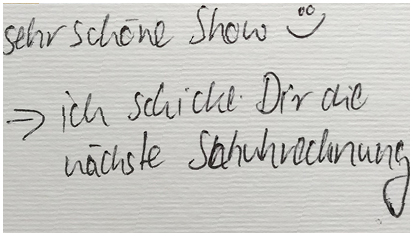 sehr schöne Show ☺
⇒ ich schicke Dir die
nächste Schuhrechnung